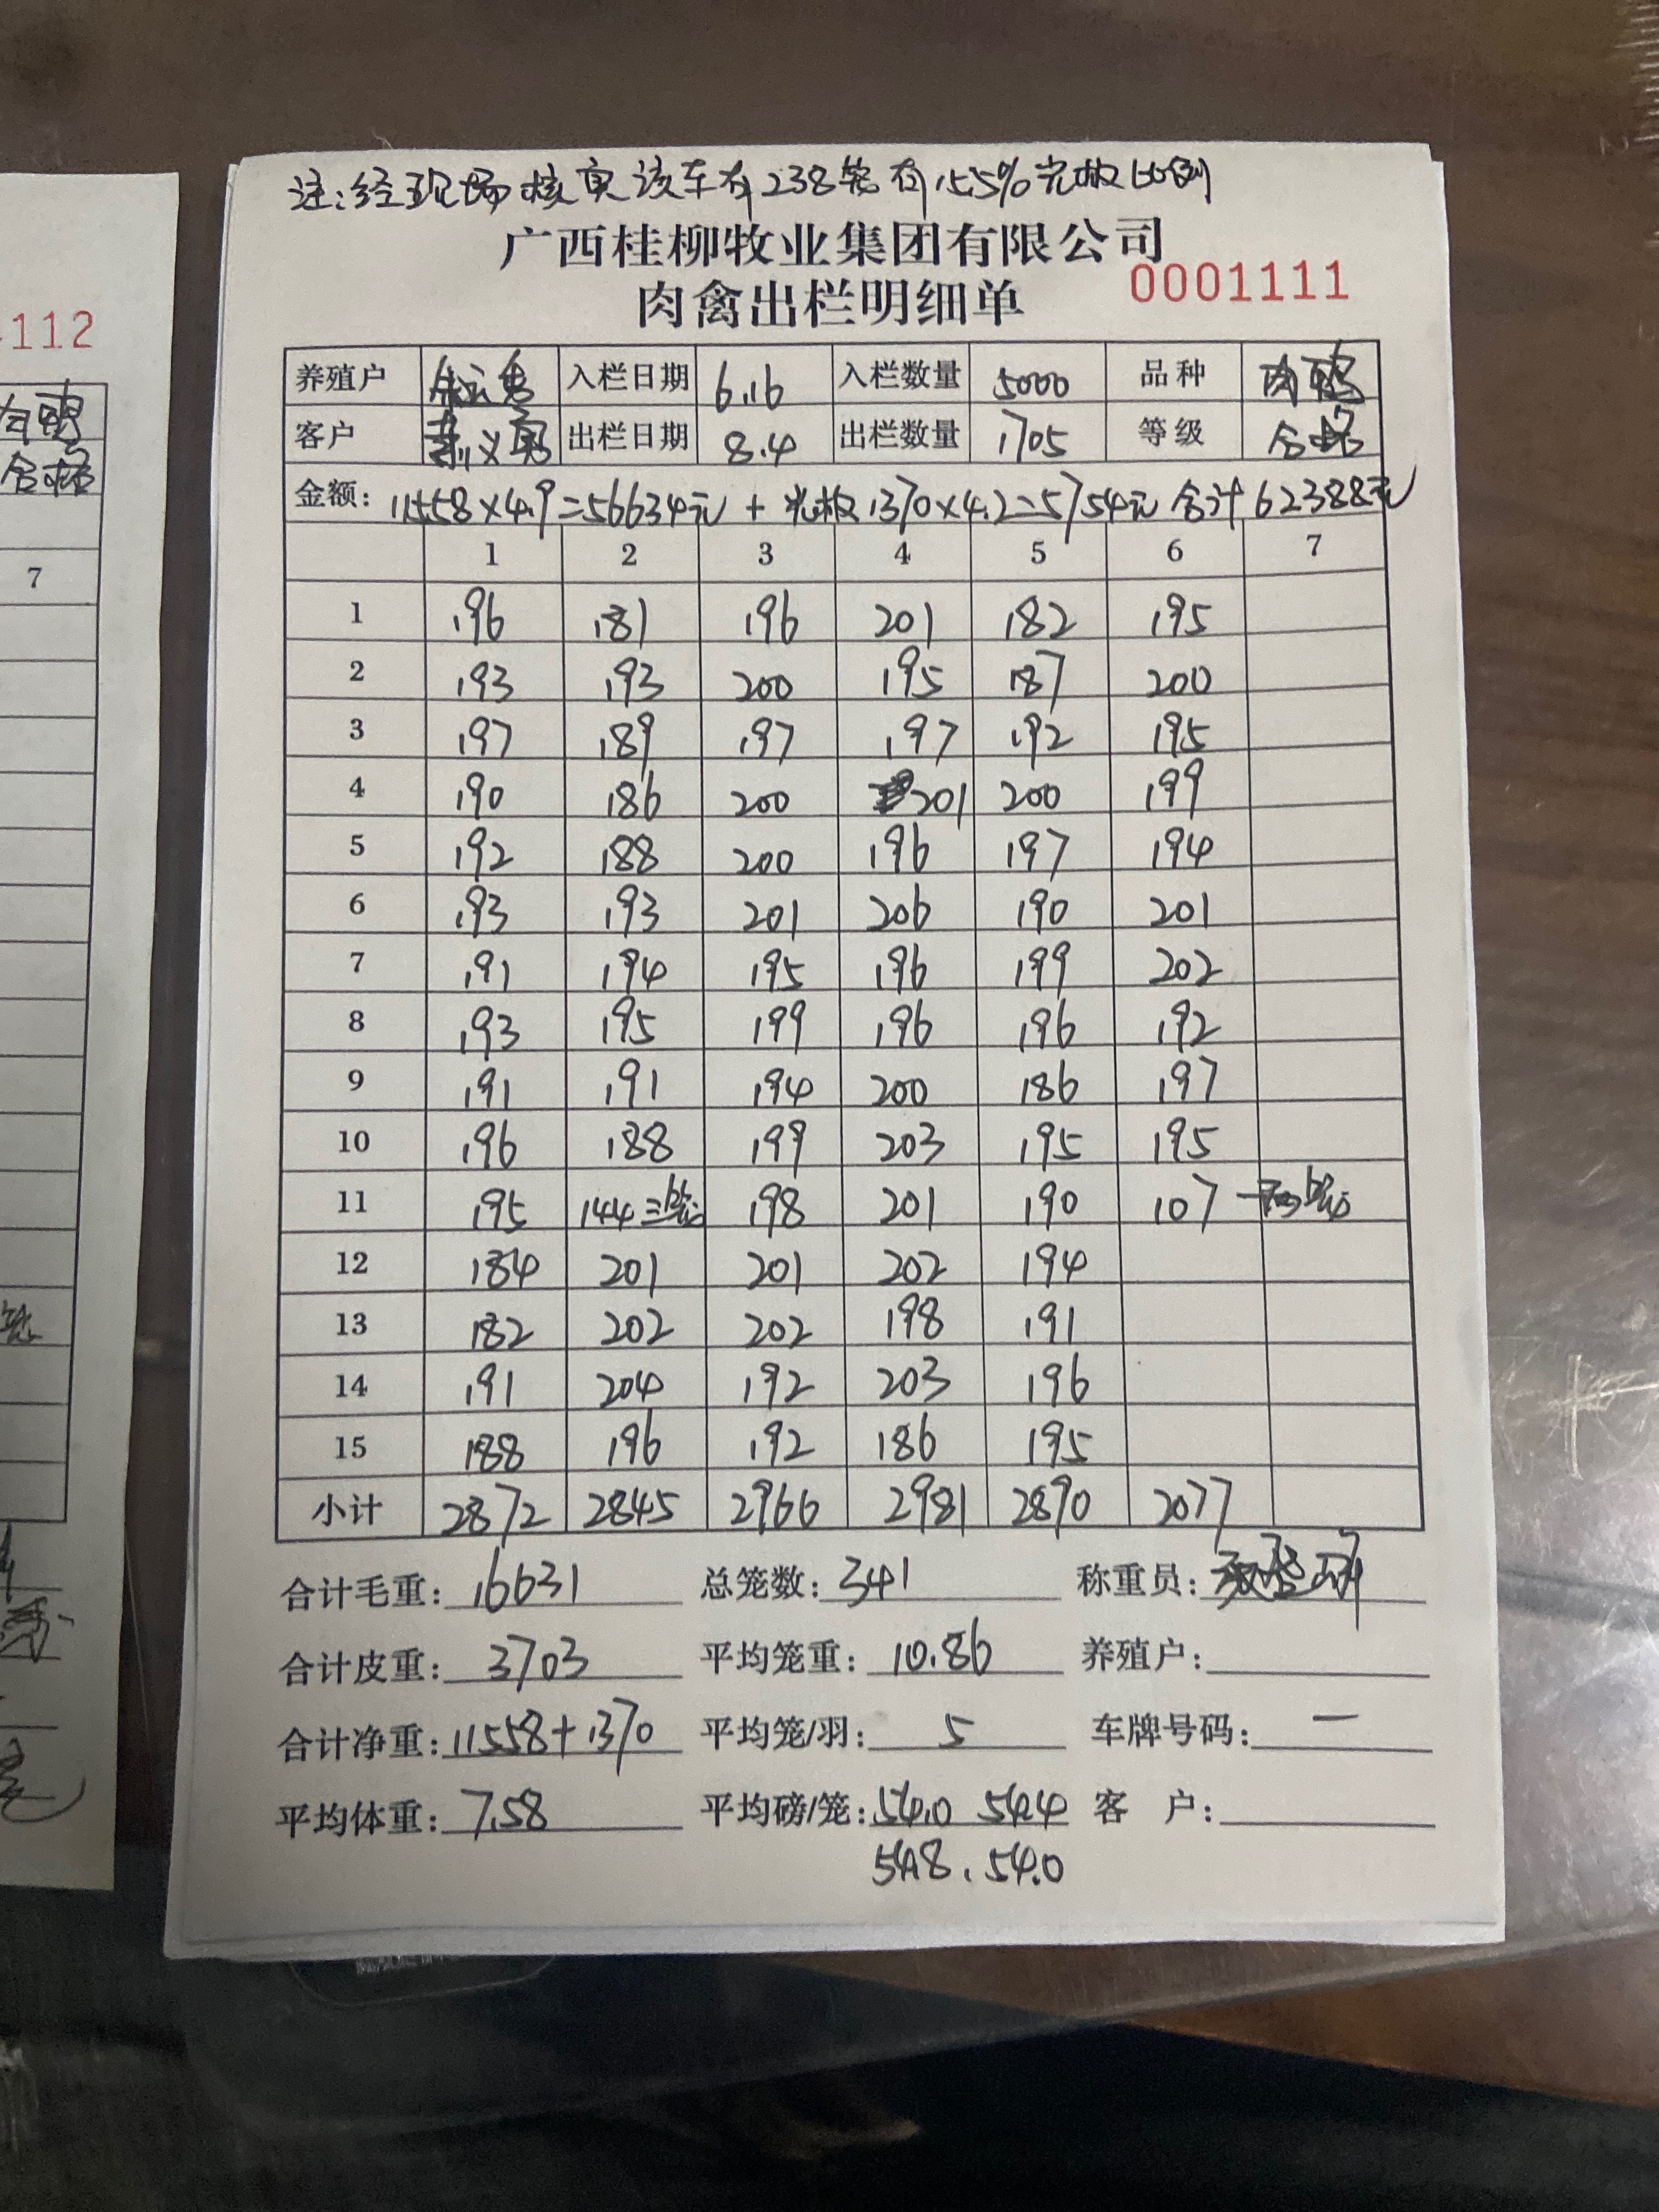 注:经现场核实该车有238笼有15.5%光板比例
广西桂柳牧业集团有限公司
肉禽出栏明细单 0001111
养殖户 入栏日期 6.16 入栏数量 5000 品种 肉鸭
客户 义勇 出栏日期 8.4 出栏数量 1705 等级 合格
金额: 11558×4.9=56634元 + 光板1370×4.2=5754元 合计62388元
1 2 3 4 5 6 7
1 196 181 196 201 182 195
2 193 193 200 195 187 200
3 197 189 197 197 192 195
4 190 186 200 201 200 199
5 192 188 200 196 197 194
6 193 193 201 206 190 201
7 191 194 195 196 199 202
8 193 195 199 196 196 192
9 191 191 194 200 186 197
10 196 188 199 203 195 195
11 195 144三笼 198 201 190 107
12 184 201 201 202 194
13 182 202 202 198 191
14 191 204 192 203 196
15 188 196 192 186 195
小计 2872 2845 2966 2981 2890 2077
合计毛重: 16631 总笼数: 341 称重员:
合计皮重: 3703 平均笼重: 10.86 养殖户:
合计净重: 11558+1370 平均笼/羽: 5 车牌号码: 一
平均体重: 7.58 平均磅/笼: 54.0 54.4 客 户:
54.8 . 54.0
112
肉鸭
合格
7